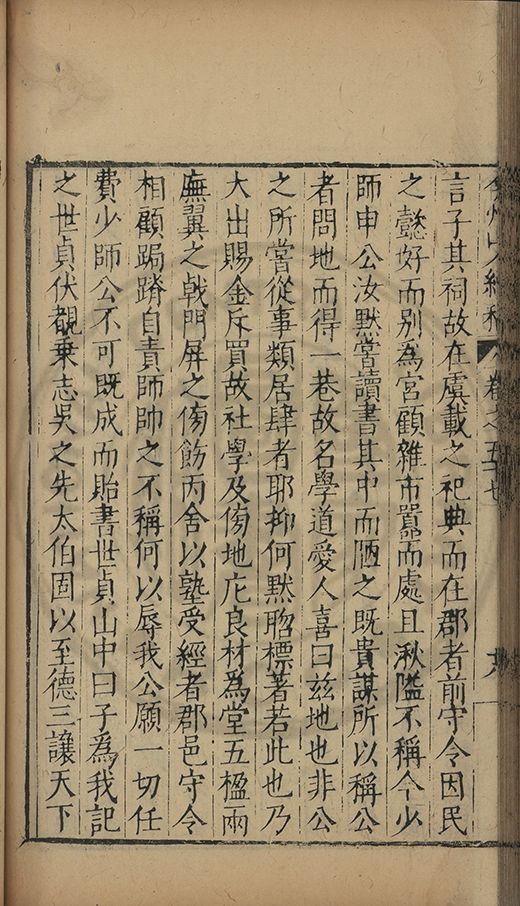 弇州山人續稿 卷之五十七 十八
言子其祠故在虞載之祀典而在郡者前守令因民
之懿好而別為宮顧雜市囂而處且湫隘不稱今少
師申公汝默嘗讀書其中而陋之既貴謀所以稱公
者問地而得一巷故名學道愛人喜曰茲地也非公
之所嘗從事類居肆者耶抑何默䁱標著若此也乃
大出賜金斥買故社學及傍地庀良材為堂五楹兩
廡翼之戟門屏之傍飭丙舍以塾受經者郡邑守令
相顧跼蹐自責師帥之不稱何以辱我公願一切任
費少師公不可既成而貽書世貞山中曰子為我記
之世貞伏覩乗志吳之先太伯固以至德三讓天下